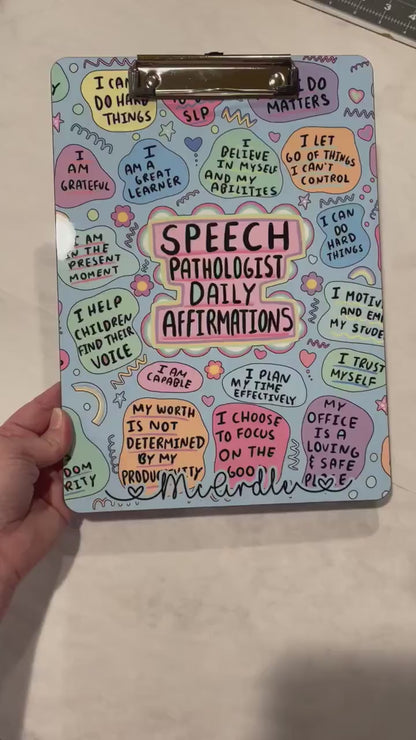 I CAN
DO HARD
THINGS
SLP
I DO
MATTERS
I
AM
GRATEFUL
I
AM A
GREAT
LEARNER
I
BELIEVE
IN MYSELF
AND MY
ABILITIES
I LET
GO OF THINGS
I CAN'T
CONTROL
I AM
IN THE
PRESENT
MOMENT
SPEECH
PATHOLOGIST
DAILY
AFFIRMATIONS
I CAN
DO
HARD
THINGS
I HELP
CHILDREN
FIND THEIR
VOICE
I MOTIV
AND EM
MY STUDE
I AM
CAPABLE
I PLAN
MY TIME
EFFECTIVELY
I TRUST
MYSELF
MY WORTH
IS NOT
DETERMINED
BY MY
PRODUCTIVITY
I CHOOSE
TO FOCUS
ON THE
GOO
MY
OFFICE
IS A
LOVING
& SAFE
PLACE
DOM
RITY
McArdle